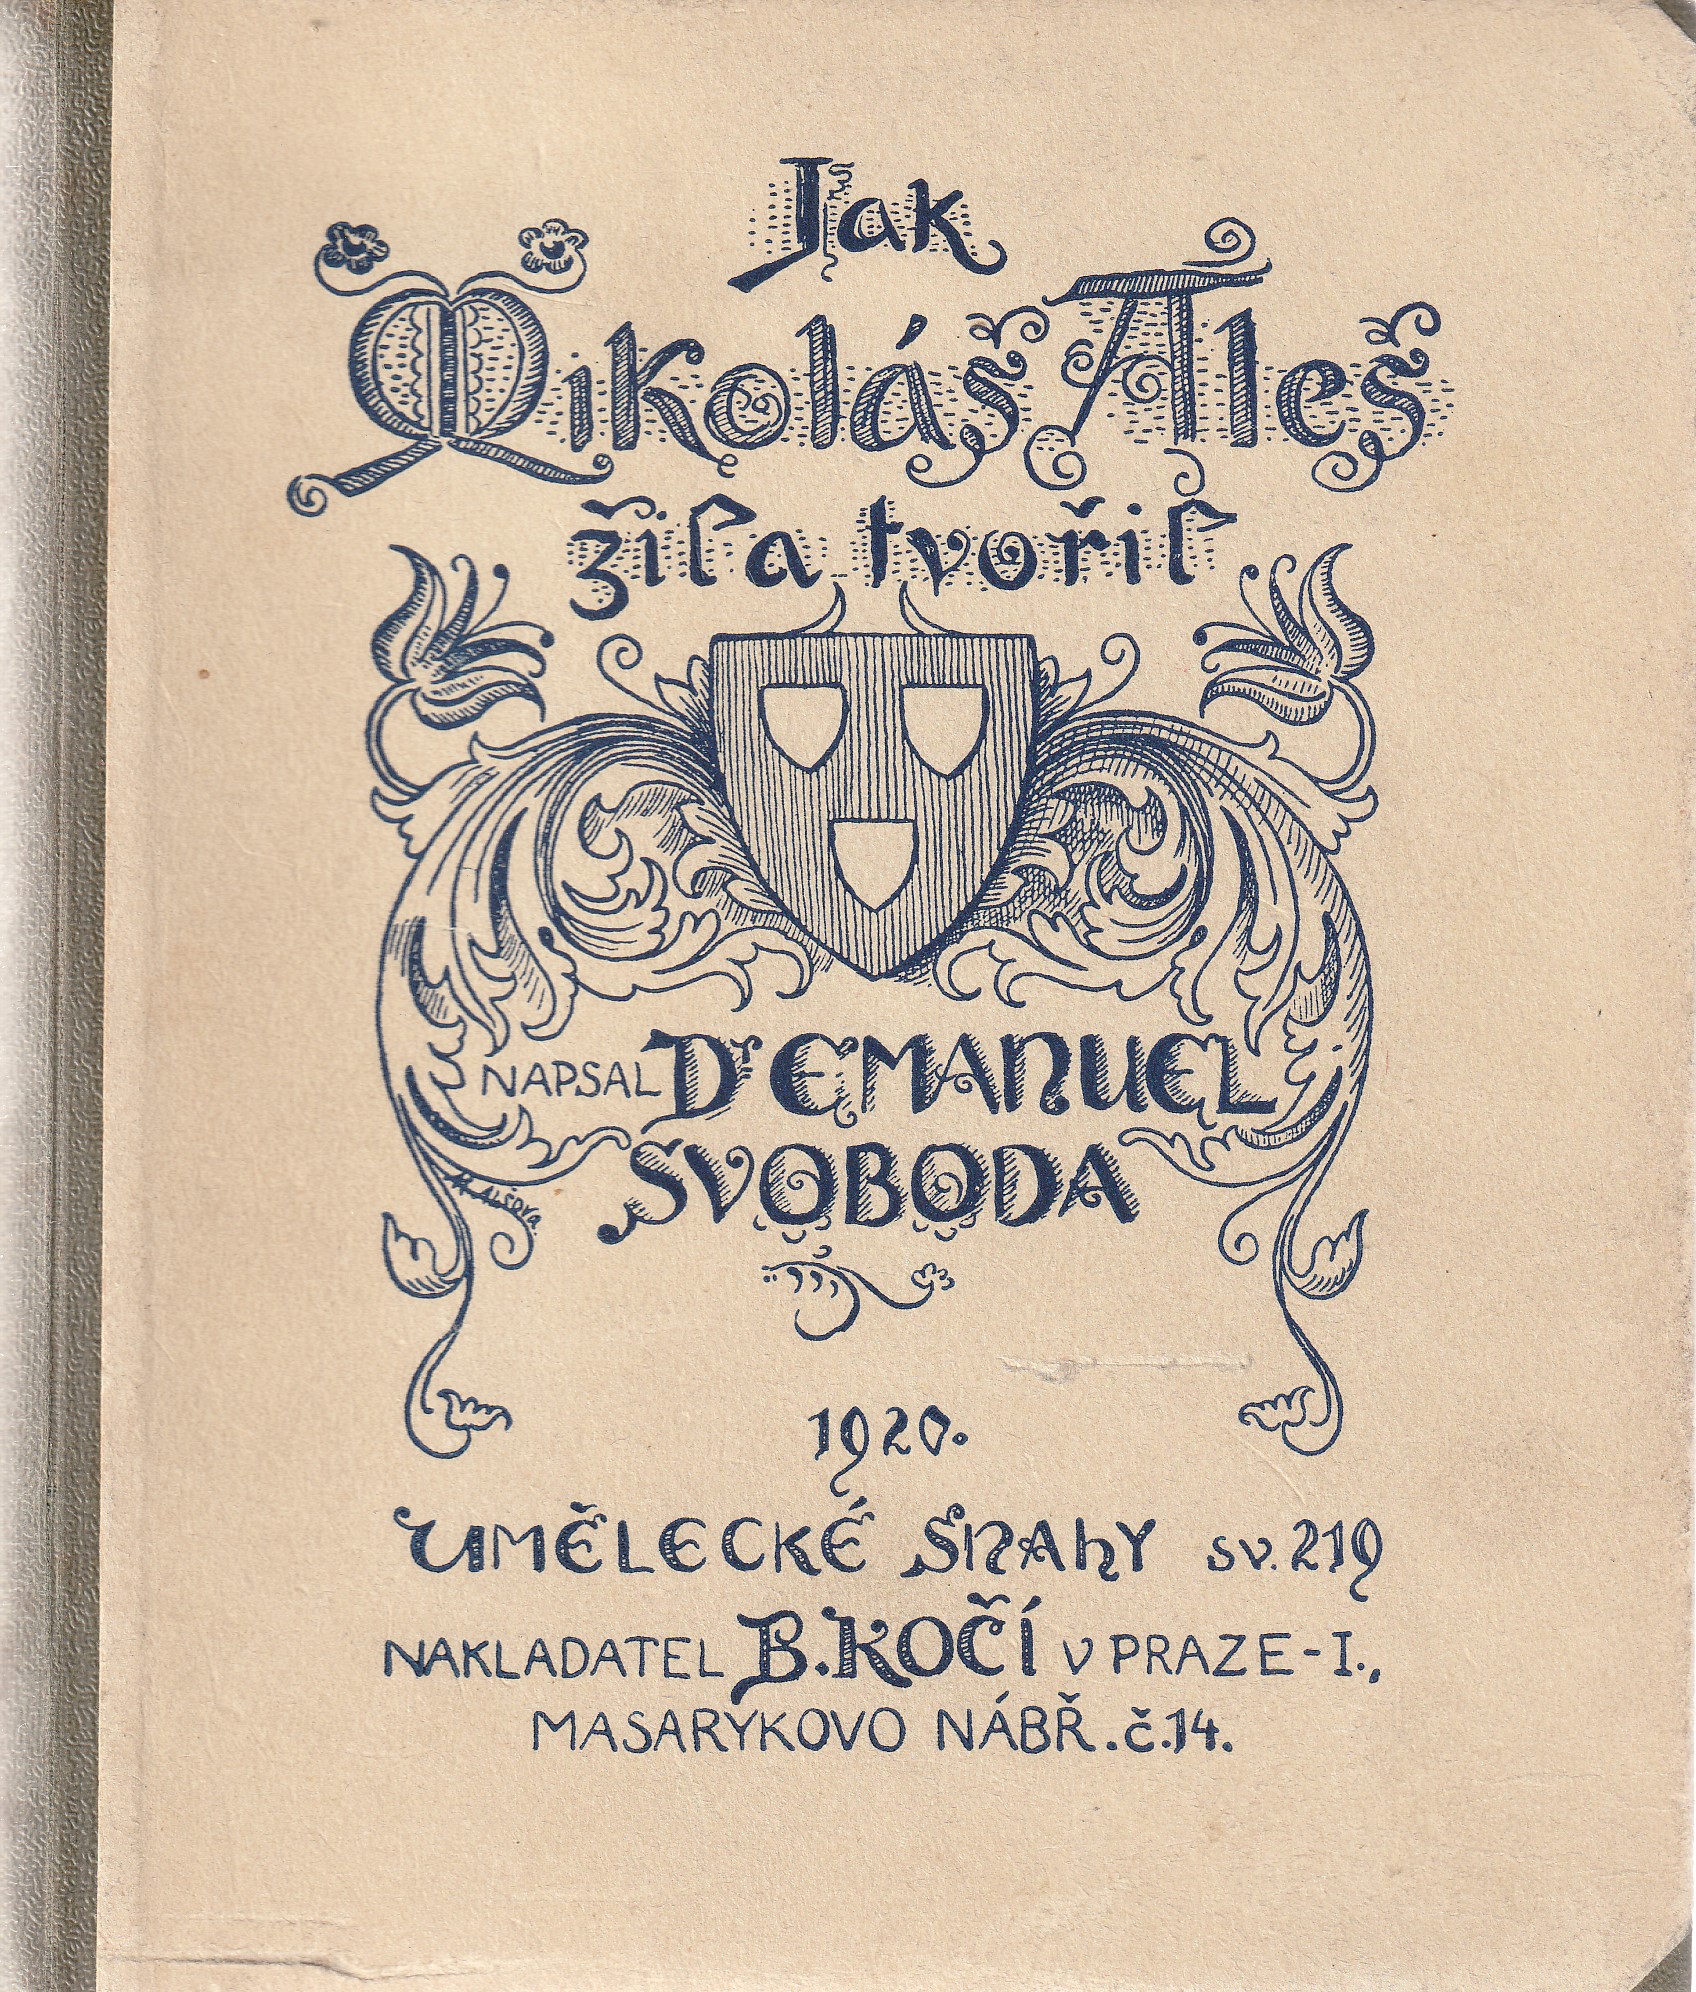 Jak
Mikoláš Aleš
žil a tvořil
NAPSAL Dr EMANUEL
SVOBODA
M. ALŠOVÁ
1920.
UMĚLECKÉ SNAHY sv. 219
NAKLADATEL B. KOČÍ V PRAZE-I.,
MASARYKOVO NÁBŘ. č. 14.